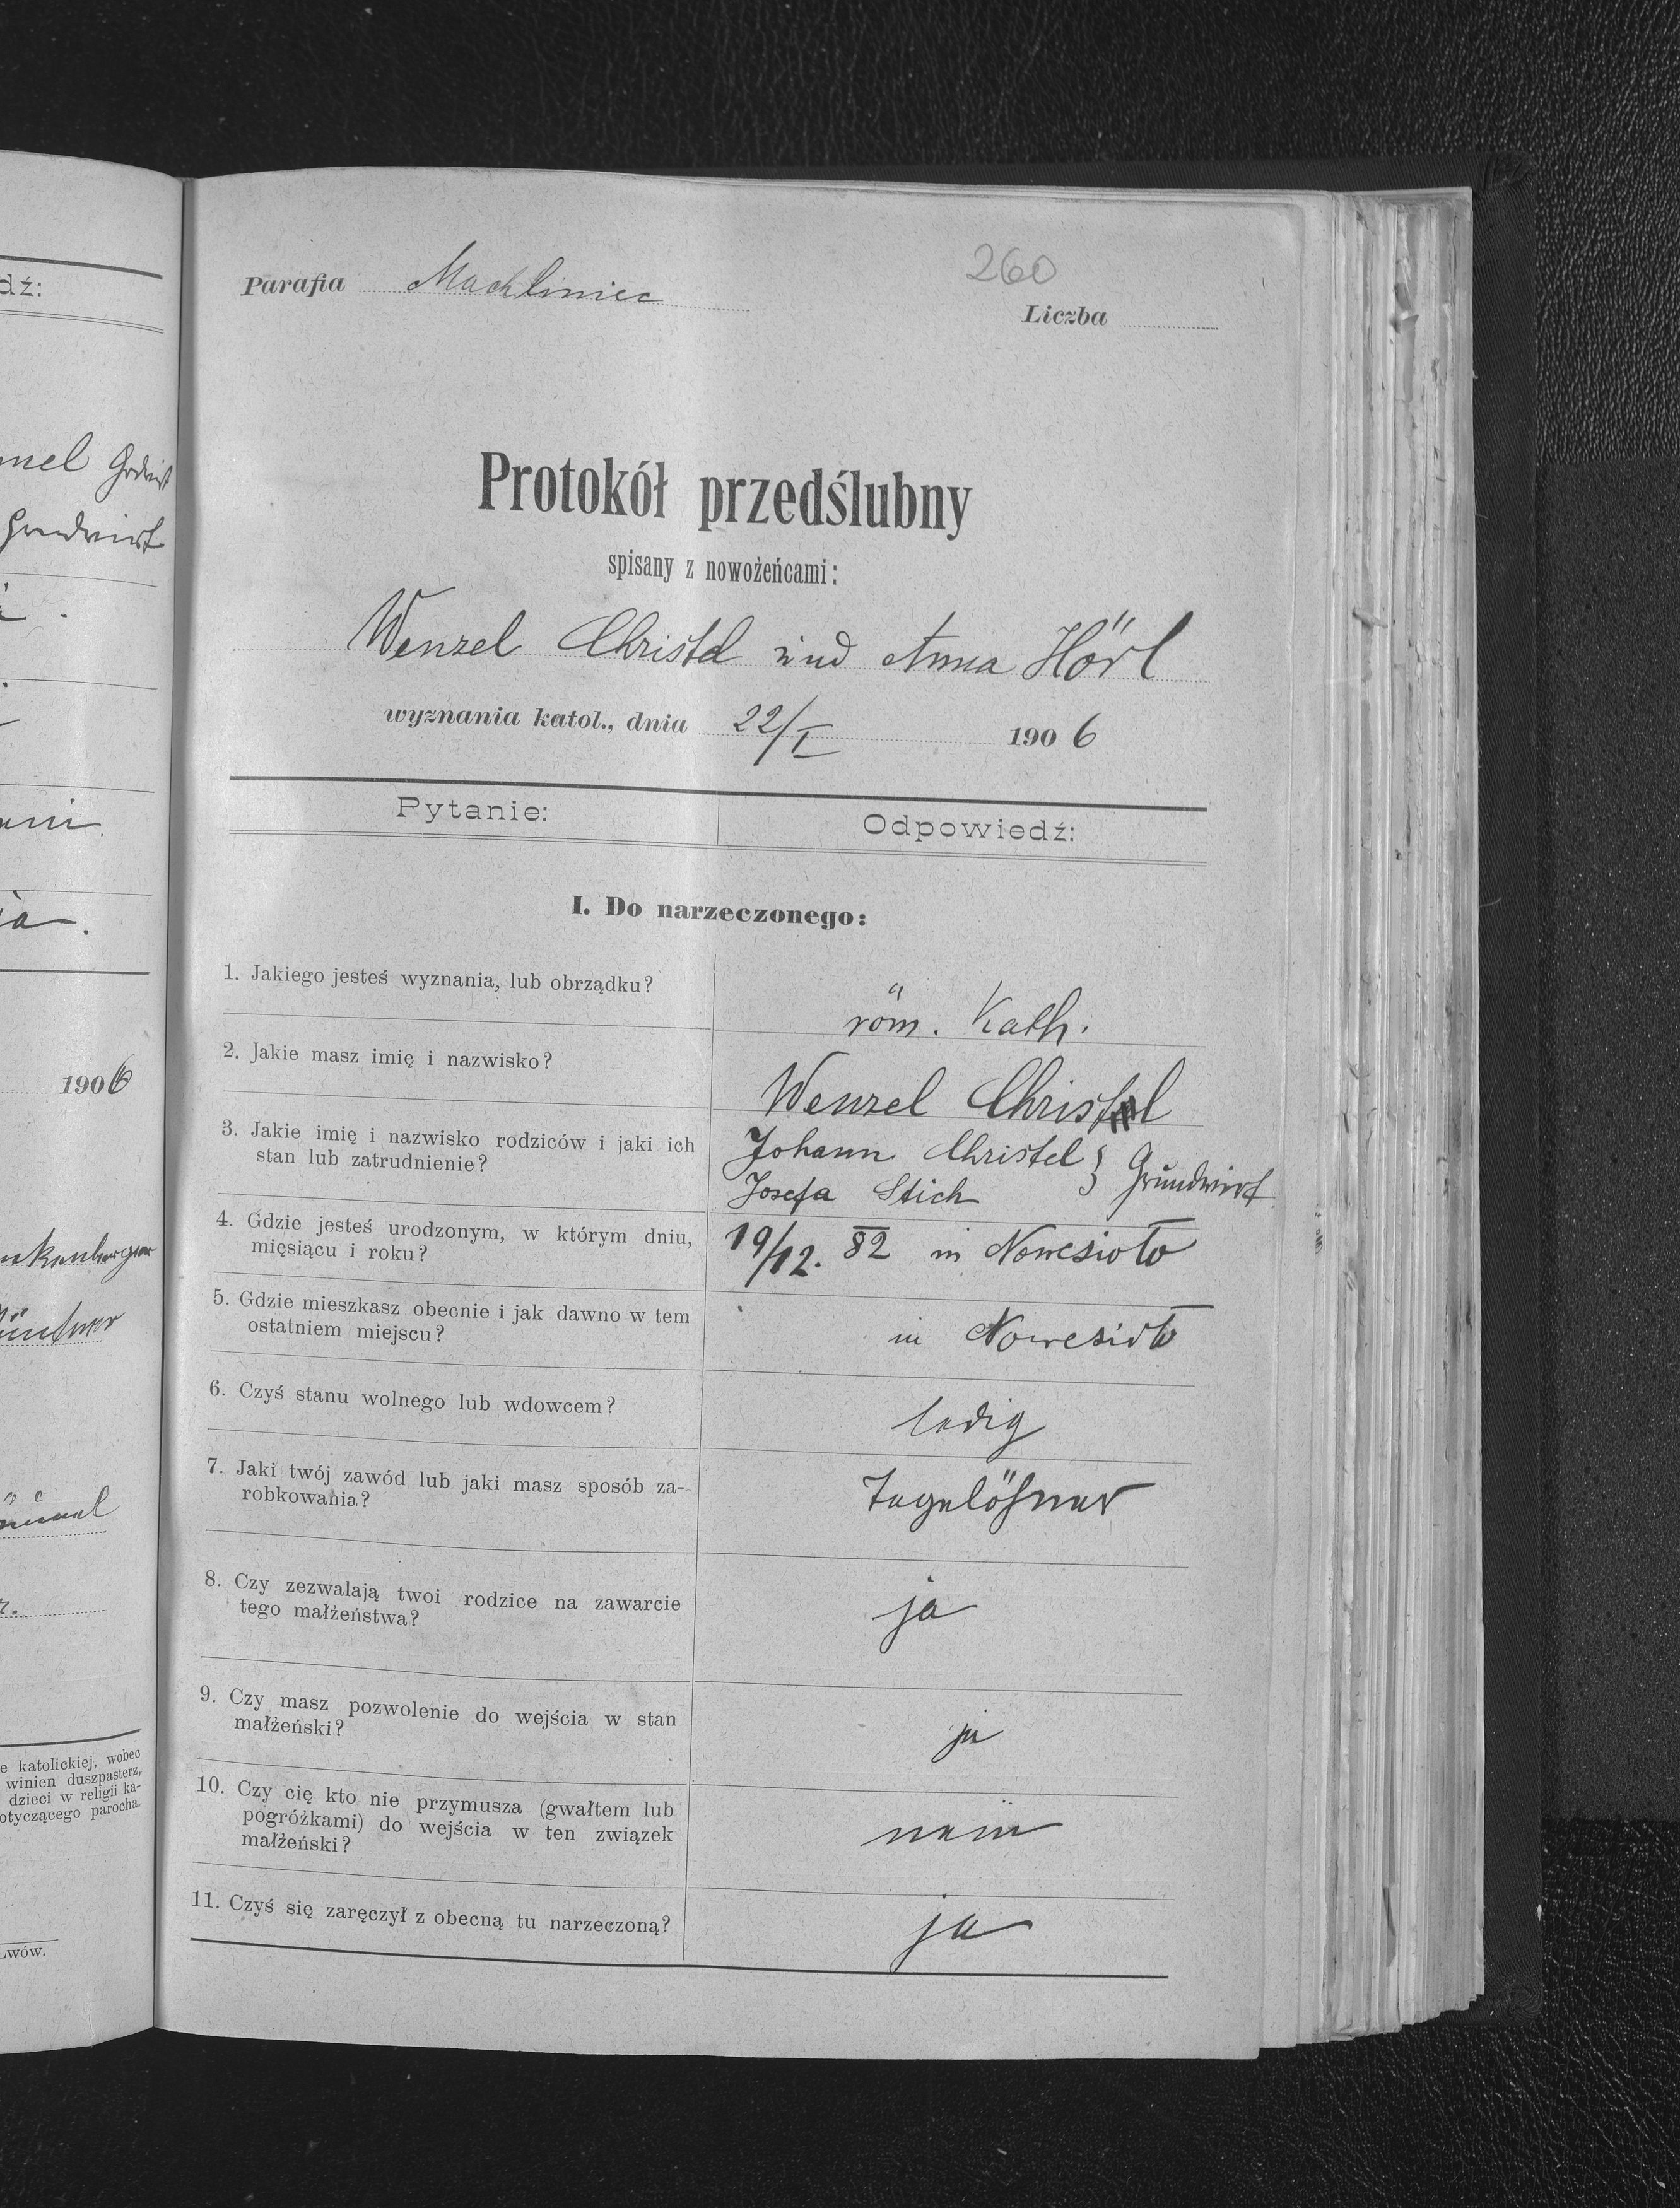 dź:
Grdwirt
Grundwirt
1906
katolickiej, wobec
winien duszpasterz,
dzieci w religii ka-
otyczącego parocha-
Lwów.
260
Parafia Machliniec
Liczba
Protokół przedślubny
spisany z nowożeńcami:
Wenzel Christel und Anna Hörl
wyznania katol., dnia 22/I 1906
Pytanie: Odpowiedź:
I. Do narzeczonego:
1. Jakiego jesteś wyznania, lub obrządku?
röm. Kath.
2. Jakie masz imię i nazwisko?
Wenzel Christel
3. Jakie imię i nazwisko rodziców i jaki ich
stan lub zatrudnienie?
Johann Christel } Grundwirt
Josefa Stich
4. Gdzie jesteś urodzonym, w którym dniu,
mięsiącu i roku?
19/12. 82 in Nowesioło
5. Gdzie mieszkasz obecnie i jak dawno w tem
ostatniem miejscu?
in Nowesioło
6. Czyś stanu wolnego lub wdowcem?
ledig
7. Jaki twój zawód lub jaki masz sposób za-
robkowania?
Tagelöhner
8. Czy zezwalają twoi rodzice na zawarcie
tego małżeństwa?
ja
9. Czy masz pozwolenie do wejścia w stan
małżeński?
ja
10. Czy cię kto nie przymusza (gwałtem lub
pogróżkami) do wejścia w ten związek
małżeński?
nein
11. Czyś się zaręczył z obecną tu narzeczoną?
ja